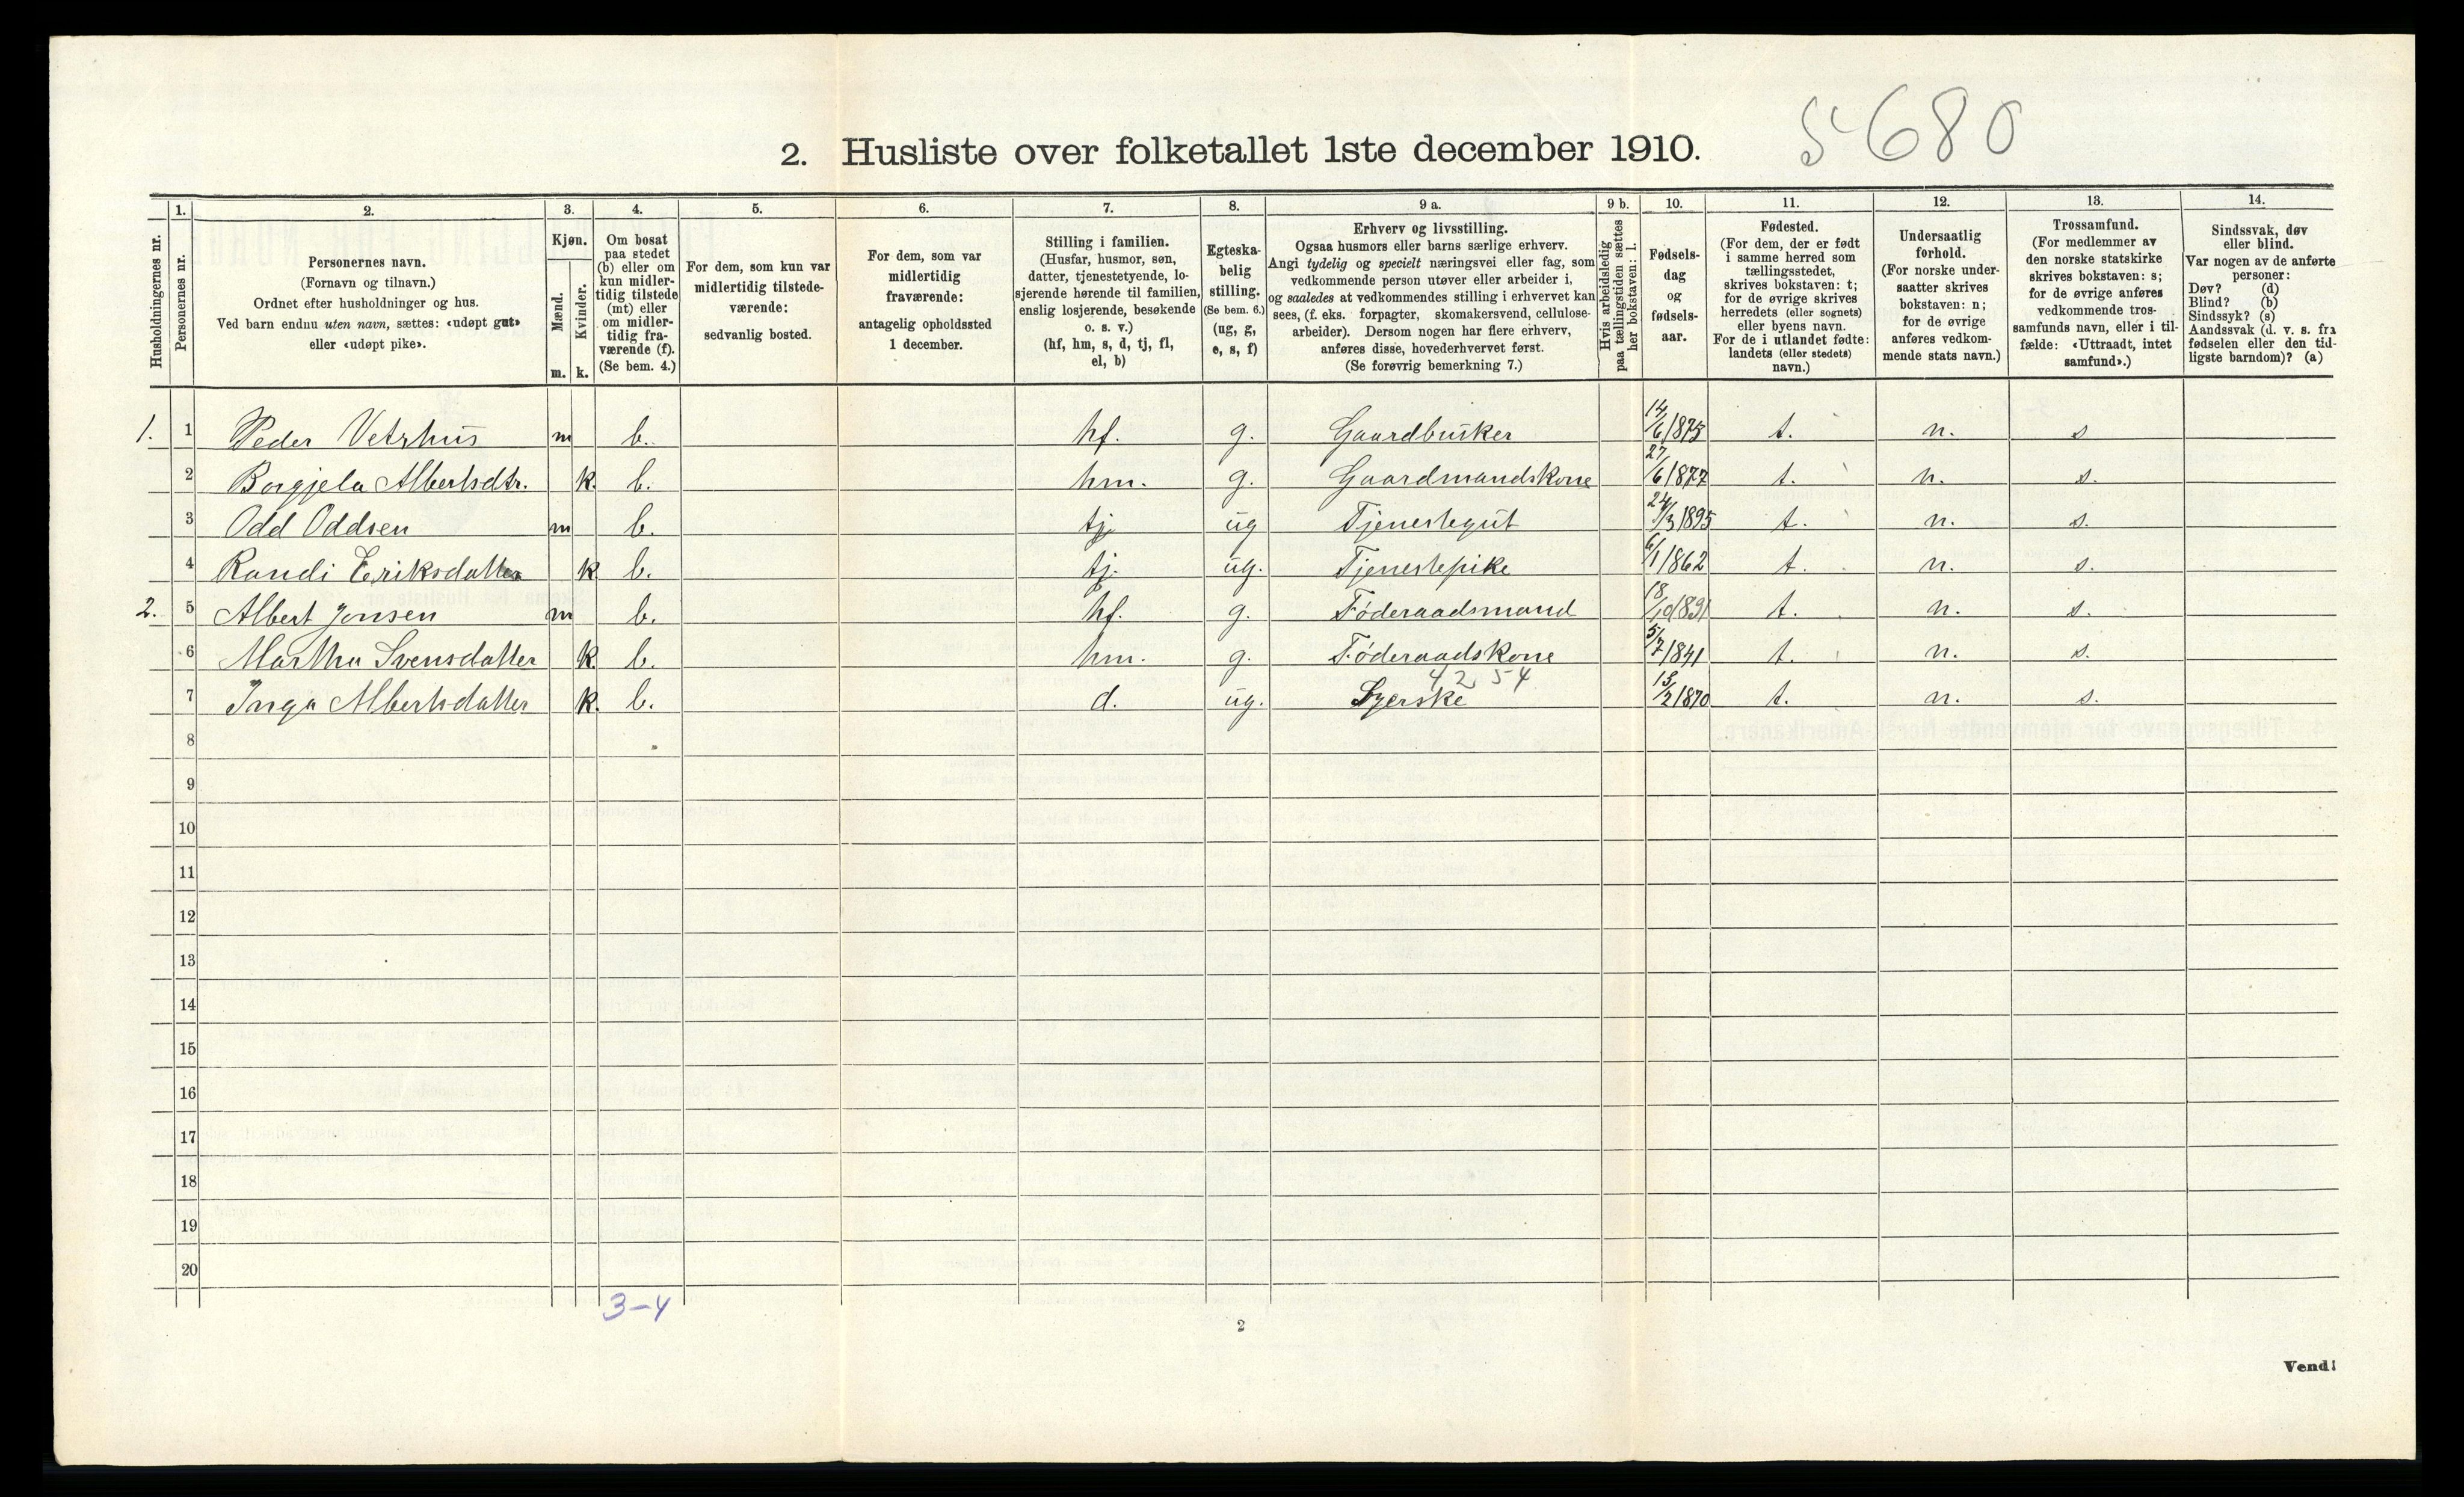 5680
2. Husliste over folketallet 1ste december 1910.
Husholdningernes nr.
1. Personernes nr.
2. Personernes navn.
(Fornavn og tilnavn.)
Ordnet efter husholdninger og hus.
Ved barn endnu uten navn, sættes: «udøpt gut»
eller «udøpt pike».
3. Kjøn.
Mænd. m.
Kvinder. k.
4. Om bosat
paa stedet
(b) eller om
kun midler-
tidig tilstede
(mt) eller
om midler-
tidig fra-
værende (f).
(Se bem. 4.)
5. For dem, som kun var
midlertidig tilstede-
værende:
sedvanlig bosted.
6. For dem, som var
midlertidig
fraværende:
antagelig opholdssted
1 december.
7. Stilling i familien.
(Husfar, husmor, søn,
datter, tjenestetyende, lo-
sjerende hørende til familien,
enslig losjerende, besøkende
o. s. v.)
(hf, hm, s, d, tj, fl,
el, b)
8. Egteska-
belig
stilling.
(Se bem. 6.)
(ug, g,
e, s, f)
9 a. Erhverv og livsstilling.
Ogsaa husmors eller barns særlige erhverv.
Angi tydelig og specielt næringsvei eller fag, som
vedkommende person utøver eller arbeider i,
og saaledes at vedkommendes stilling i erhvervet kan
sees, (f. eks. forpagter, skomakersvend, cellulose-
arbeider). Dersom nogen har flere erhverv,
anføres disse, hovederhvervet først.
(Se forøvrig bemerkning 7.)
9 b. Hvis arbeidsledig
paa tællingstiden sættes
her bokstaven: l.
10. Fødsels-
dag
og
fødsels-
aar.
11. Fødested.
(For dem, der er født
i samme herred som
tællingsstedet,
skrives bokstaven: t;
for de øvrige skrives
herredets (eller sognets)
eller byens navn.
For de i utlandet fødte:
landets (eller stedets)
navn.)
12. Undersaatlig
forhold.
(For norske under-
saatter skrives
bokstaven: n;
for de øvrige
anføres vedkom-
mende stats navn.)
13. Trossamfund.
(For medlemmer av
den norske statskirke
skrives bokstaven: s;
for de øvrige anføres
vedkommende tros-
samfunds navn, eller i til-
fælde: «Uttraadt, intet
samfund».)
14. Sindssvak, døv
eller blind.
Var nogen av de anførte
personer:
Døv? (d)
Blind? (b)
Sindssyk? (s)
Aandssvak (d. v. s. fra
fødselen eller den tid-
ligste barndom)? (a)
1. 1 Peder Vetrhus m b. hf. g. Gaardbruker 14/6 1873 t. n. s
2 Borgjela Albertsdtr. k. b. hm. g. Gaardmandskone 27/6 1877 t. n. s.
3 Odd Oddsen m b. tj. ug Tjenestegut 24/3 1895 t. n. s.
4 Randi Eriksdatter k. b. tj. ug. Tjenestepike 6/1 1862 t. n. s.
2. 5 Albert Jonsen m b. hf. g. Føderaadsmand 18/10 1831 t. n. s.
6 Martha Svensdatter k. b. hm. g. Føderaadskone 5/7 1841 t. n. s.
42 54
7 Inga Albertsdatter k. b. d. ug. Syerske 13/2 1870 t. n. s.
8
9
10
11
12
13
14
15
16
17
18
19
20
3-4
2
Vend!